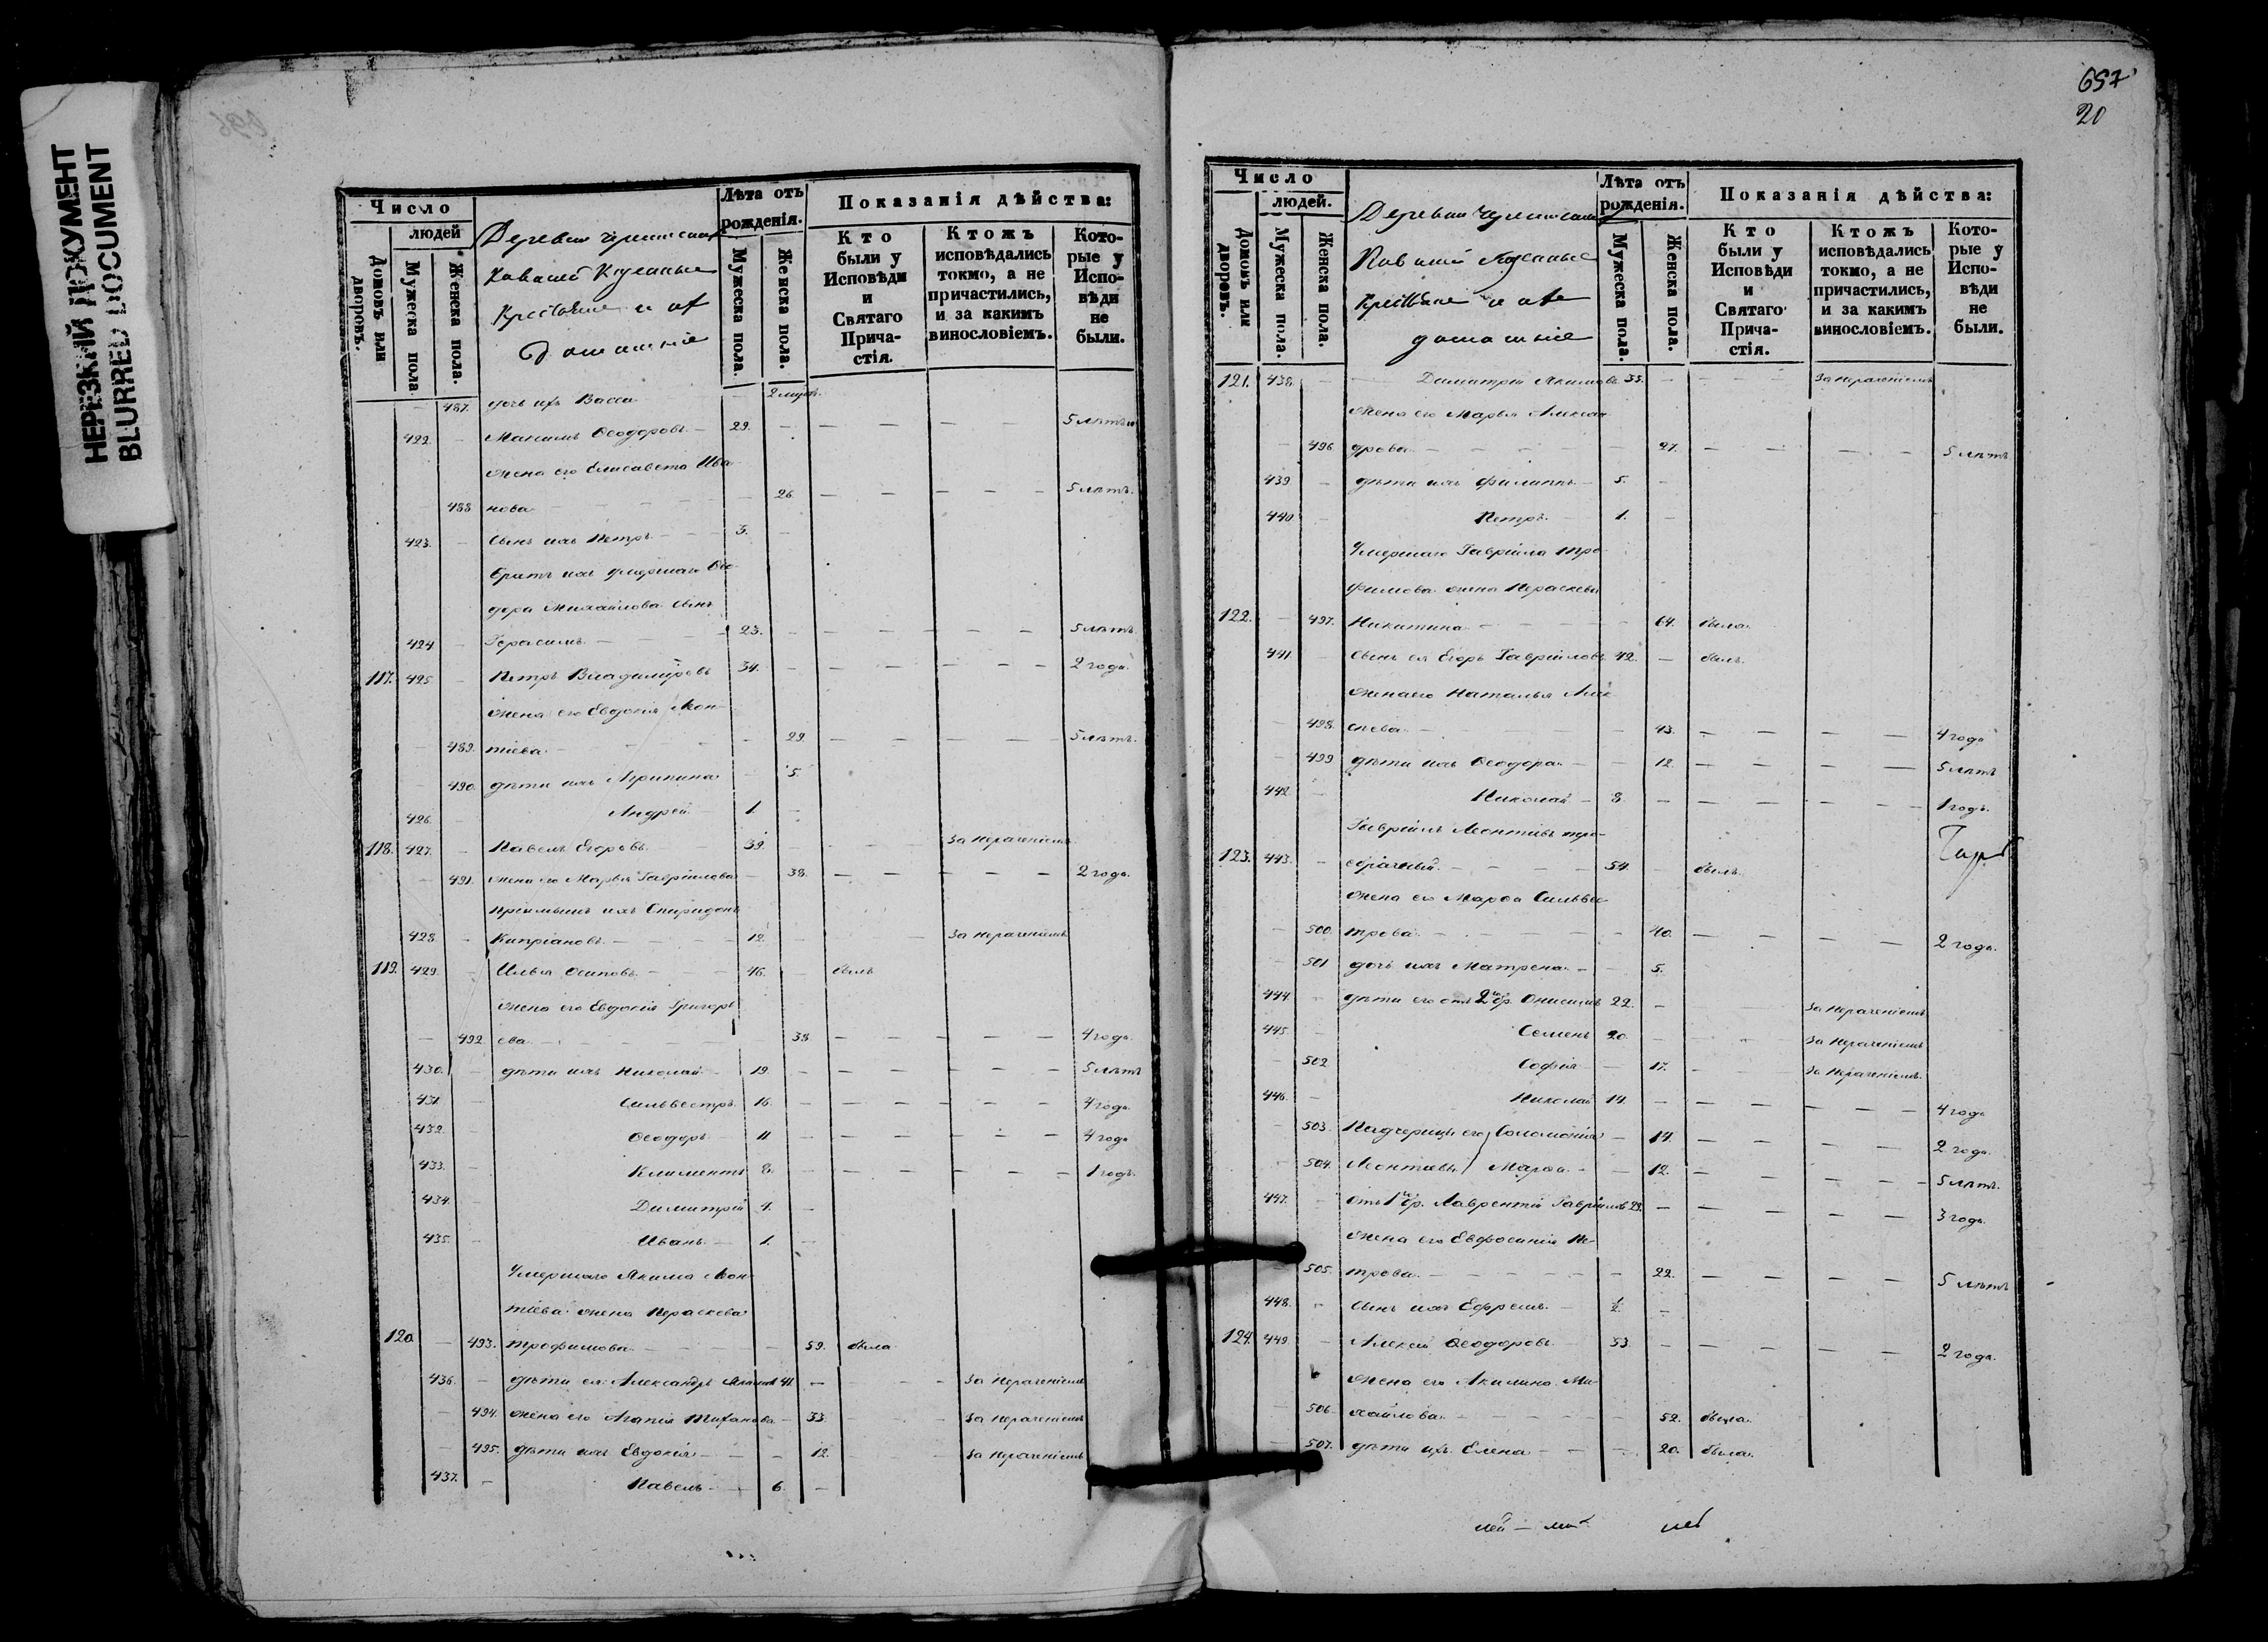 НЕРЕЗКИЙ ДОКУМЕНТ
BLURRED DOCUMENT
Число
людей
Домовъ или дворовъ.
Мужеска пола.
Женска пола.
Деревни
Крестьяне и их
домашніе
Лѣта отъ рожденія.
Мужеска пола.
Женска пола.
Показанія дѣйства:
Кто были у Исповѣди и Святаго Причастія.
Ктожъ исповѣдались токмо, а не причастились, и за какимъ винословіемъ.
Которые у Исповѣди не были.
487. дочь ихъ Васса — 2 мцъ.
422. — Максимъ Ѳеодоровъ — 29. — — — — — 5 лѣтъ
жена его Елисавета Ива
488 нова — 26. — — — — 5 лѣтъ.
423. — сынъ ихъ Петръ — 3. —
братъ ихъ умершаго Ѳео
дора Михайлова сынъ
424 — Герасимъ — 23. — — — — — 5 лѣтъ
117. 425 — Петръ Владиміровъ 34. — — — — — 2 года.
жена его Евдокія Леон
— 489. тіева — 29. — — — — 5 лѣтъ.
— 490. дѣти ихъ Агрипина — 5.
426. — Андрей — 1. —
118. 427. — Павелъ Егоровъ — 39. — — — за нераченіемъ
— 491. жена его Марья Гавріилова — 38. — — — — 2 года.
пріемышъ ихъ Спиридонъ
428. — Кипріановъ — 12. — — за нераченіемъ
119. 429. — Илья Осиповъ — 46. — былъ
жена его Евдокія Григорь
— 492. ева — 38. — — — — 4 года.
430. — дѣти ихъ Николай — 19. — — — — — 5 лѣтъ
431 — Сильвестръ. 16. — — — — — 4 года.
432. — Ѳеодоръ — 11 — — — — — 4 года
433. — Климентъ 8. — — — — — 1 годъ.
434. — Димитрій 4. —
435. — Иванъ — 1. —
Умершаго Якима Леон
тіева жена Параскева
120. — 493. Трофимова — 59. была
436. — дѣти ея: Александръ Якимовъ 41. — — — за нераченіемъ
— 494. жена его Агапія — 33. — за нераченіемъ
— 495. дѣти ихъ Евдокія — 12. — за нераченіемъ
437. — Павелъ — 6. —
657
20
Число
людей.
Домовъ или дворовъ.
Мужеска пола.
Женска пола.
Деревни
Крестьяне и их
домашніе
Лѣта отъ рожденія.
Мужеска пола.
Женска пола.
Показанія дѣйства:
Кто были у Исповѣди и Святаго Причастія.
Ктожъ исповѣдались токмо, а не причастились, и за какимъ винословіемъ.
Которые у Исповѣди не были.
121. 438. — Димитрій Якимовъ 33. — — — за нераченіемъ
жена его Марья Алексан
— 496. дрова — 27. — — — — 5 лѣтъ
439 — дѣти ихъ Филиппъ — 5. —
440 — Петръ — 1. —
Умершаго Гавріила Тро
фимова жена Параскева
122. — 497. Никитина — 64. была.
441 — сынъ ея Егоръ Гавріиловъ 42. — былъ.
жена его Наталья Алек
— 498. сѣева — 43. — — — — 4 года
— 499 дѣти ихъ Ѳеодора — 12. — — — — 5 лѣтъ
442 — Николай — 8. — — — — — 1 годъ.
Гавріилъ Леонтьевъ
123. 443. — — 54. — былъ.
жена его Марѳа Сильве
— 500. трова — 40. — — — — 2 года.
— 501 дочь ихъ Матрена — 5.
444 — дѣти его отъ 2го бр. Онисимъ 22. — — за нераченіемъ
445. — Семенъ 20. — — за нераченіемъ
— 502 Софія — 17. — за нераченіемъ.
446. — Николай 14. — — — — — 4 года
— 503. Падчерицы его Соломонія — 14. — — — — 2 года.
— 504. Леонтьевы Марѳа — 12. — — — — 5 лѣтъ.
447. — отъ 1го бр. Лаврентій Гавріиловъ 29. — — — — — 3 года.
жена его Евфросинія Пе
— 505. трова — 22. — — — — 5 лѣтъ
448. — сынъ ихъ Ефремъ — ½ —
124. 449. — Алексѣй Ѳеодоровъ 53. — — — — — 2 года.
жена его Акилина Ми
— 506. хайлова — 52. была.
— 507. дѣти ихъ Елена — 20. была.